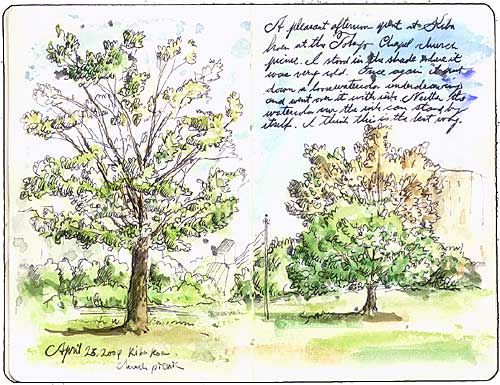 A pleasant afternoon spent at Kiba
koen at the Tokyo Chapel church
picnic. I stood in the shade where it
was very cold. Once again I put
down a loose watercolor underdrawing
and went over it with ink. Neither the
watercolor nor the ink can stand by
itself. I think this is the best way.
April 28, 2009 Kiba Koen
church picnic